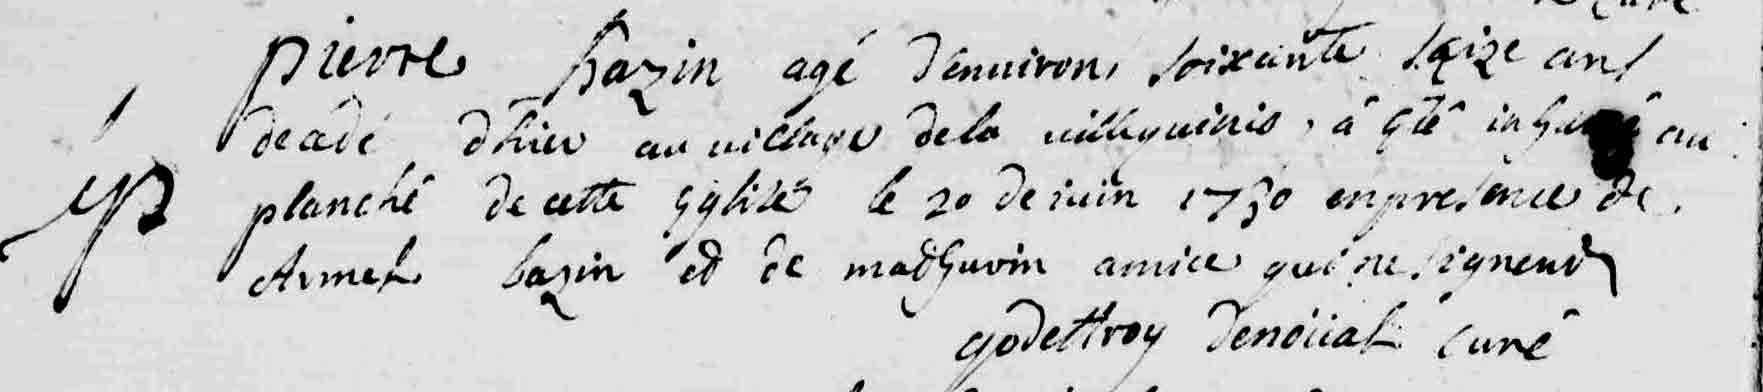 pierre bazin agé d'enuiron soixante seize ans
decédé d'hier au uillage de la uilleguinio, a êté inhumé au
planché de cette église le 20 de iuin 1730 en presence de
Armel bazin et de mathurin amice qui ne signent
godeffroy denoüal curé